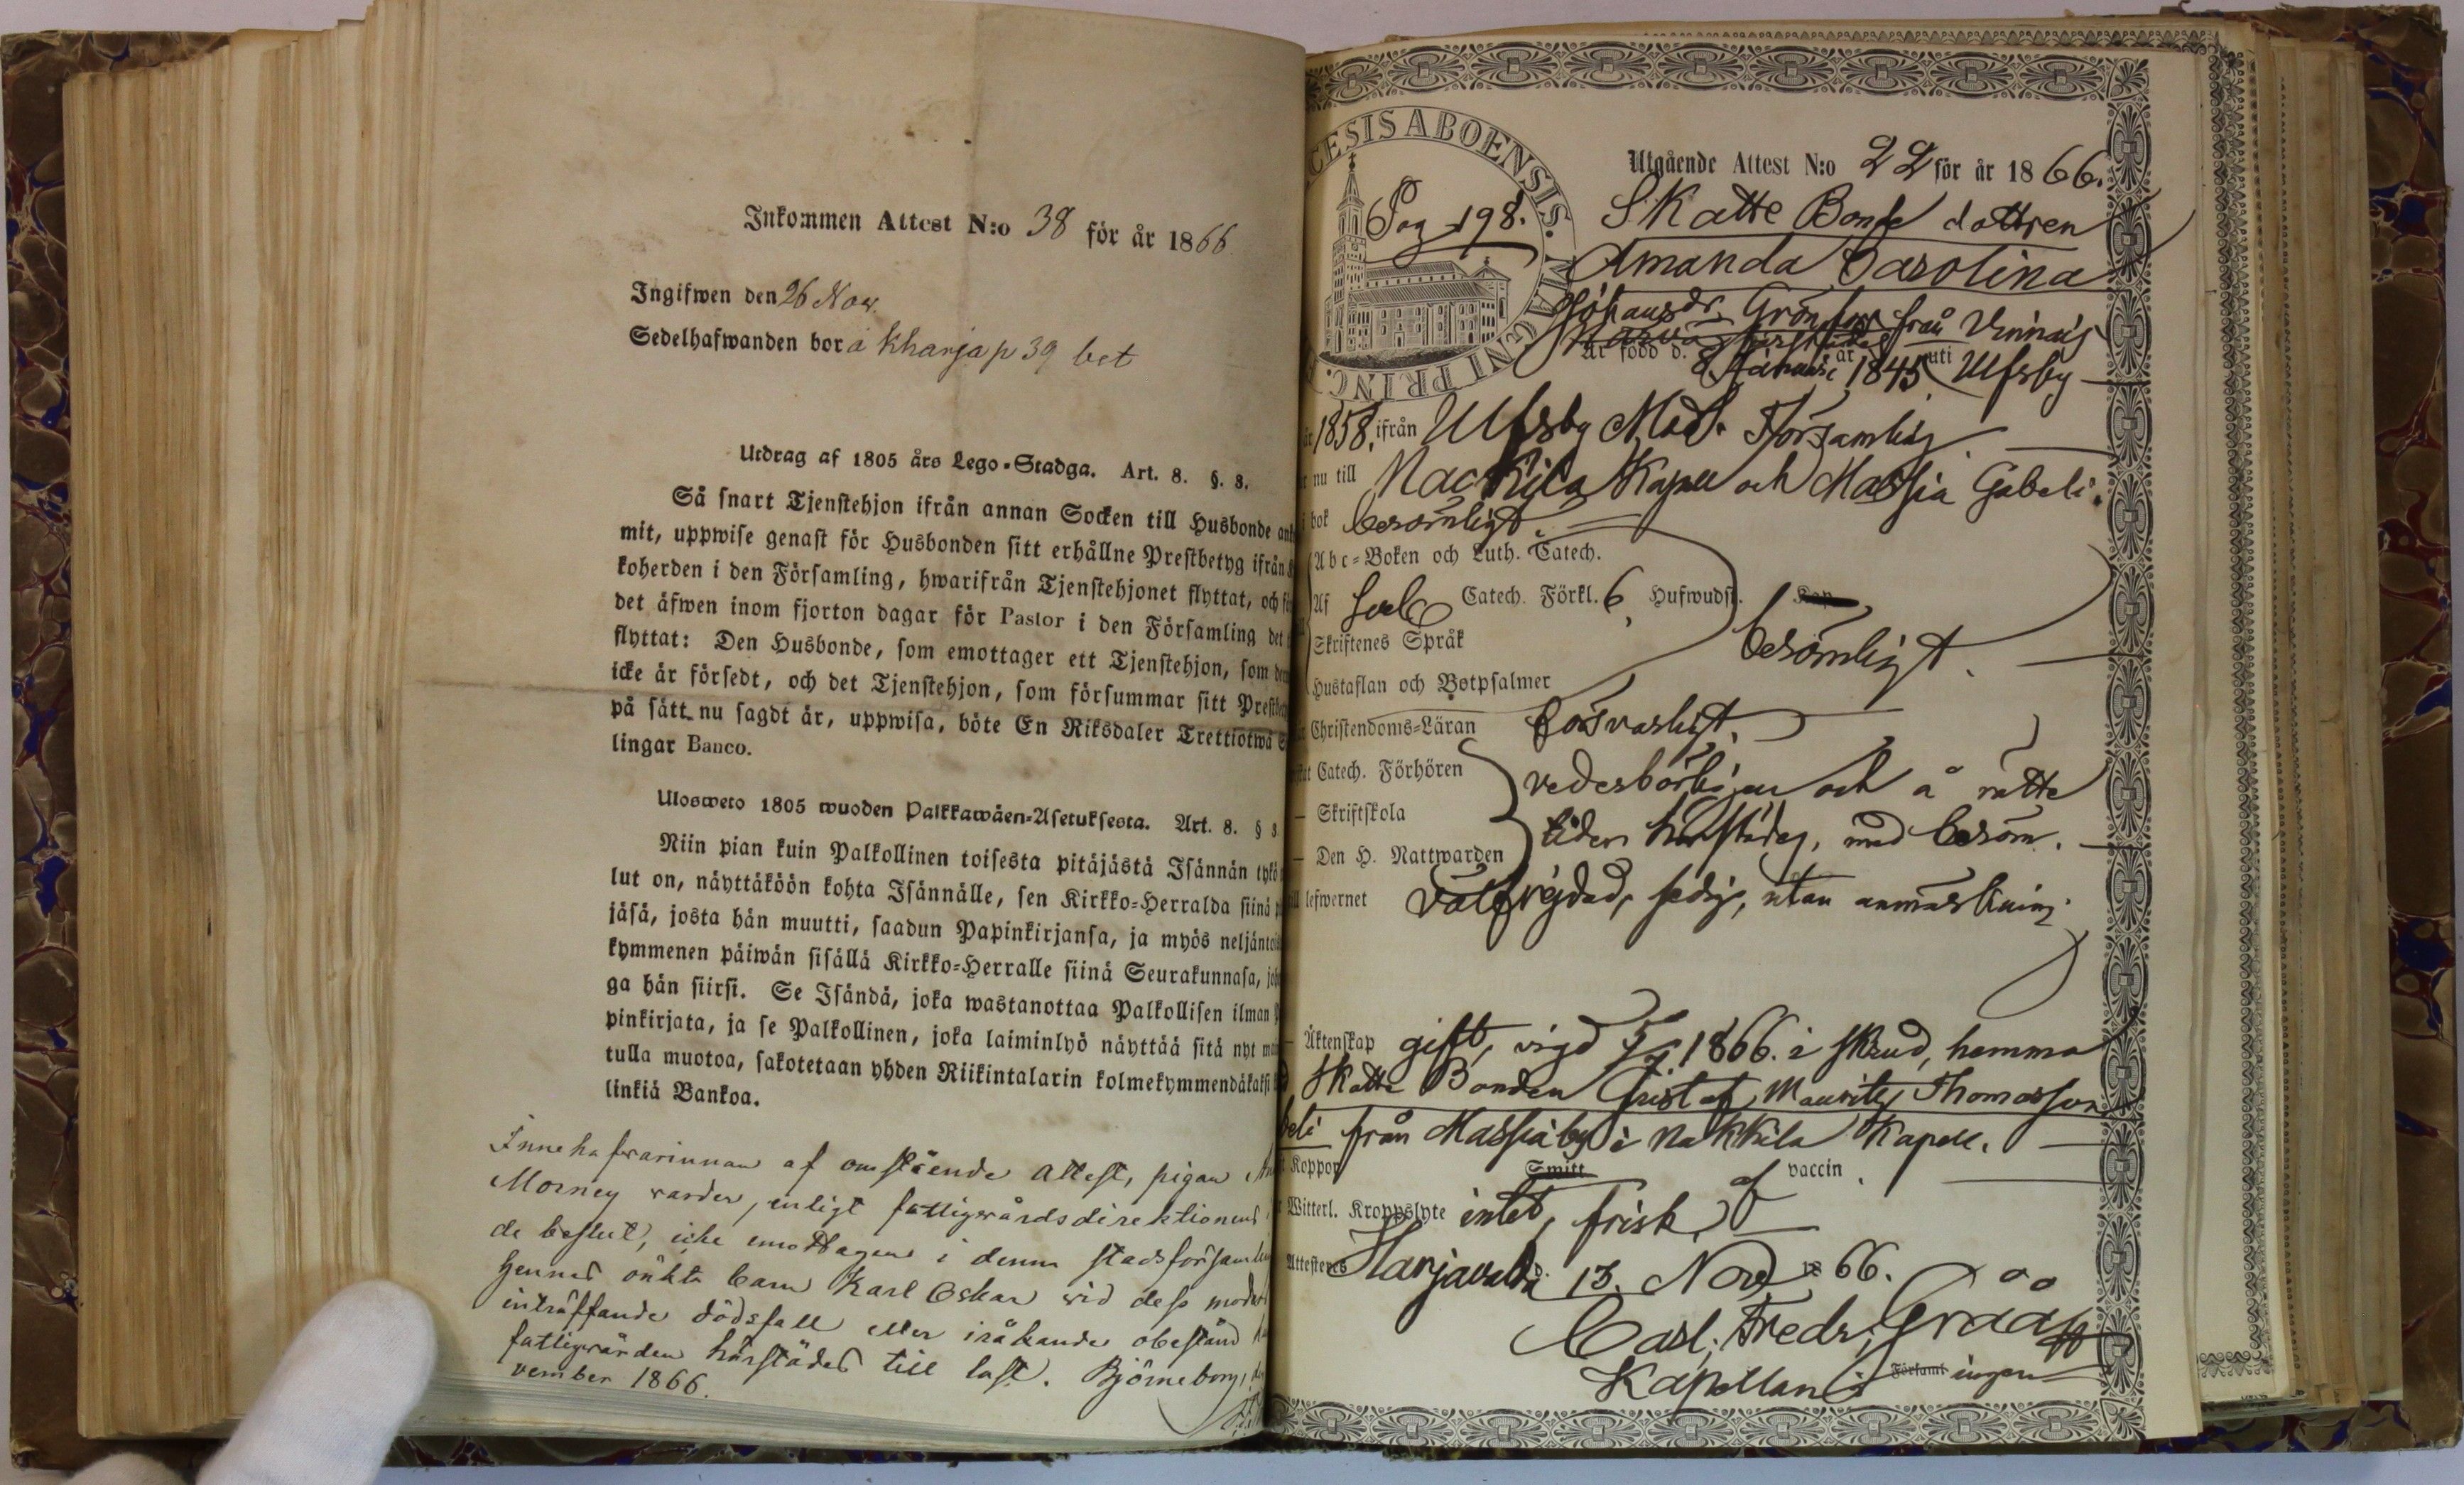 Inkommen Attest N:o 38 för år 1866
Ingifwen den 26 Nov.
Sedelhafwanden bor å Kharja p 39 bet
Utdrag af 1805 års Lego-Stadga. Art. 8. §. 8.
Så snart Tjenstehjon ifrån annan Socken till Husbonde
mit, uppwise genast för Husbonden sitt erhållne Prestbetyg ifrån
koherden i den Församling, hwarifrån Tjenstehjonet flyttat, och
det äfwen inom fjorton dagar för Pastor i den Församling det
flyttat: Den Husbonde, som emottager ett Tjenstehjon, som
icke är försedt, och det Tjenstehjon, som försummar sitt
på sätt nu sagdt är, uppwisa, böte En Riksdaler Trettiotwå
lingar Banco.
Ulosweto 1805 wuoden Palkkawäen-Asetuksesta. Art. 8. § 8
Niin pian kuin Palkollinen toisesta pitäjästä Isännän
lut on, näyttäköön kohta Isännälle, sen Kirkko-Herralda siinä
jäsä, josta hän muutti, saadun Papinkirjansa, ja myös
kymmenen päiwän sisällä Kirkko-Herralle siinä Seurakunnasa,
ga hän siirsi. Se Isändä, joka wastanottaa Palkollisen ilman
pinkirjata, ja se Palkollinen, joka laiminlyö näyttää sitä nyt
tulla muotoa, sakotetaan yhden Riikintalarin
linkiä Bankoa.
Innehafvarinnan af omstående attest, pigan
Morney varder, enligt fattigvårdsdirektionens
de beslut, icke emottagen i denna
hennes oäkta barn Karl Oskar vid dess
inträffande dödsfall eller iråkande obestånd
fattigvården härstädes till last. Björneborg,
vember 1866.
CESIS ABOENSIS. MAGNI PRINC.
Pag 198.
Utgående Attest N:o 22 för år 1866.
Skatte Bonde dottren
Amanda Carolina
Johansdr. Grönfors från Vinnais
är född d. 8 Januari år 1845 uti Ulfsby
1858. ifrån Ulfsby Mod. Församling
nu till Nackila Kapell och Massia Gabeli.
bok berömligt
Abc-Boken och Luth. Catech.
Af Catech. Förkl. 6 Hufwudst. Kap
Skriftenes Språk berömligt.
Hustaflan och Botpsalmer
Christendoms-Läran försvarligt.
Catech. Förhören vederbörligen och å rätte
— Skriftskola
tider härstädes, med beröm.
— Den H. Nattwarden
lefwernet välfrejdad, sedig, utan anmärkning.
Äktenskap gift, vigd 1866. i Skrud, hemma
Skatte Bonden Gustaf Mauritz Thomasson
beli från Massia by i Nakkila Kapell.
Koppor Smitt af vaccin.
Witterl. Kroppslyte intet, frisk
Attesteres Harjavalda d. 13. Nov 1866.
Carl. Fredr. Grääff
Kapellan i Församl ingen